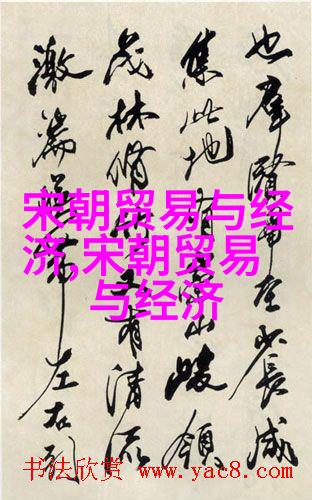 也群賢畢至少長咸
集此地有崇山峻領
茂林脩竹又有清流
激湍暎帶左右引
宋朝贸易与经
济,宋朝贸易
与经济
书法欣赏 www.yac8.com